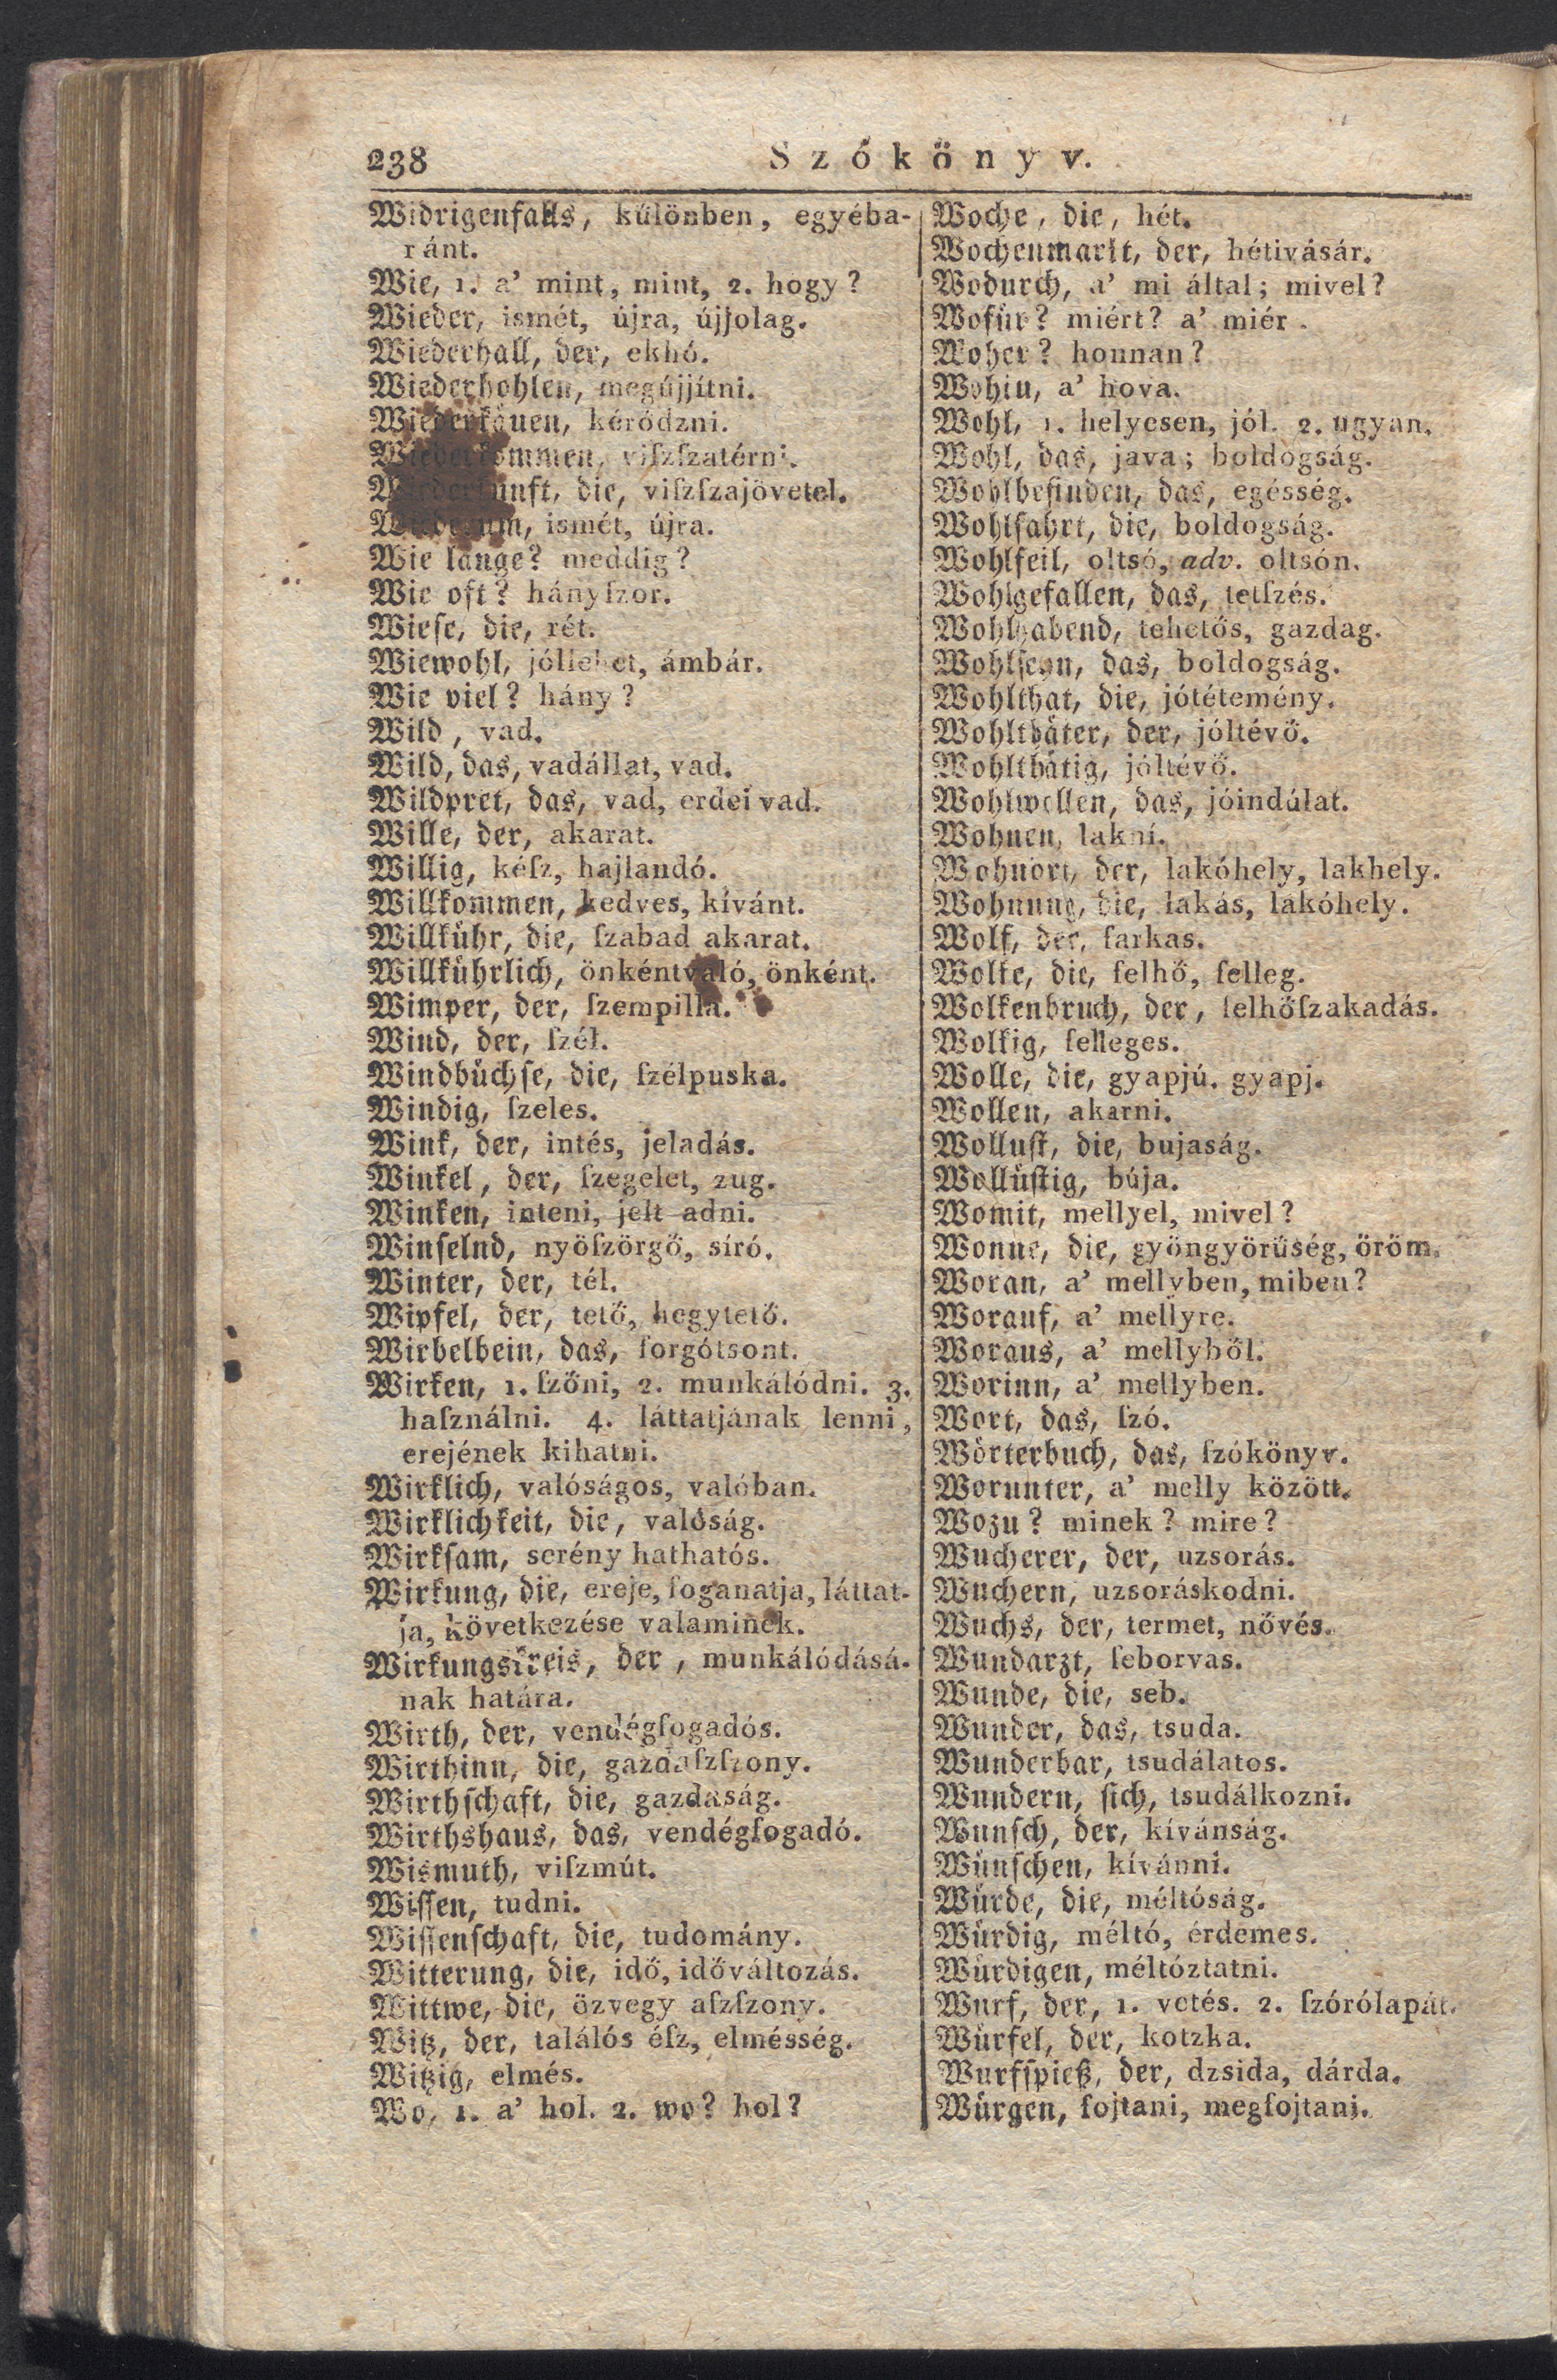 238
Szókönyv.
Widrigenfalls, különben, egyéba-
ránt.
Wie, 1. a' mint, mint, 2. hogy?
Wieder, ismét, újra, újjolag.
Wiederhall, der, ekhó.
Wiederhohlen, megújjítni.
Wiederkäuen, kérődzni.
Wiederkommen, viſzſzatérni.
Wiederkunft, die, viſzſzajövetel.
Wiederum, ismét, újra.
Wie lange? meddig?
Wie oft? hányſzor.
Wieſe, die, rét.
Wiewohl, jóllehet, ámbár.
Wie viel? hány?
Wild, vad.
Wild, das, vadállat, vad.
Wildpret, das, vad, erdei vad.
Wille, der, akarat.
Willig, kéſz, hajlandó.
Willkommen, kedves, kívánt.
Willkühr, die, ſzabad akarat.
Willkührlich, önkéntvaló, önként.
Wimper, der, ſzempilla.
Wind, der, ſzél.
Windbüchſe, die, ſzélpuska.
Windig, ſzeles.
Wink, der, intés, jeladás.
Winkel, der, ſzegelet, zug.
Winken, inteni, jelt adni.
Winſelnd, nyöſzörgő, síró.
Winter, der, tél.
Wipfel, der, tető, hegytető.
Wirbelbein, das, forgótsont.
Wirken, 1. ſzőni, 2. munkálódni. 3.
haſználni. 4. láttatjának lenni,
erejének kihatni.
Wirklich, valóságos, valóban.
Wirklichkeit, die, valóság.
Wirkſam, serény hathatós.
Wirkung, die, ereje, foganatja, láttat-
ja, következése valaminek.
Wirkungskreis, der, munkálódásá-
nak határa.
Wirth, der, vendégfogadós.
Wirthinn, die, gazdaſzſzony.
Wirthſchaft, die, gazdaság.
Wirthshaus, das, vendégfogadó.
Wismuth, viſzmút.
Wiſſen, tudni.
Wiſſenſchaft, die, tudomány.
Witterung, die, idő, időváltozás.
Wittwe, die, özvegy aſzſzony.
Witz, der, találós éſz, elmésség.
Witzig, elmés.
Wo, 1. a' hol. 2. wo? hol?
Woche, die, hét.
Wochenmarkt, der, hétivásár.
Wodurch, a' mi által; mivel?
Wofür? miért? a' miér.
Woher? honnan?
Wohin, a' hova.
Wohl, 1. helyesen, jól. 2. ugyan.
Wohl, das, java; boldogság.
Wohlbefinden, das, egésség.
Wohlfahrt, die, boldogság.
Wohlfeil, oltsó, adv. oltsón.
Wohlgefallen, das, tetſzés.
Wohlhabend, tehetős, gazdag.
Wohlſeyn, das, boldogság.
Wohlthat, die, jótétemény.
Wohlthäter, der, jóltévő.
Wohlthätig, jóltévő.
Wohlwollen, das, jóindúlat.
Wohnen, lakni.
Wohnort, der, lakóhely, lakhely.
Wohnung, die, lakás, lakóhely.
Wolf, der, farkas.
Wolke, die, felhő, felleg.
Wolkenbruch, der, felhőſzakadás.
Wolkig, felleges.
Wolle, die, gyapjú. gyapj.
Wollen, akarni.
Wolluſt, die, bujaság.
Wollüſtig, búja.
Womit, mellyel, mivel?
Wonne, die, gyöngyörűség, öröm.
Woran, a' mellyben, miben?
Worauf, a' mellyre.
Woraus, a' mellyből.
Worinn, a' mellyben.
Wort, das, ſzó.
Wörterbuch, das, ſzókönyv.
Worunter, a' melly között.
Wozu? minek? mire?
Wucherer, der, uzsorás.
Wuchern, uzsoráskodni.
Wuchs, der, termet, nővés.
Wundarzt, ſeborvas.
Wunde, die, seb.
Wunder, das, tsuda.
Wunderbar, tsudálatos.
Wundern, ſich, tsudálkozni.
Wunſch, der, kívánság.
Wünſchen, kívánni.
Würde, die, méltóság.
Würdig, méltó, érdemes.
Würdigen, méltóztatni.
Wurf, der, 1. vetés. 2. ſzórólapát.
Würfel, der, kotzka.
Wurfſpieß, der, dzsida, dárda.
Würgen, fojtani, megfojtani.